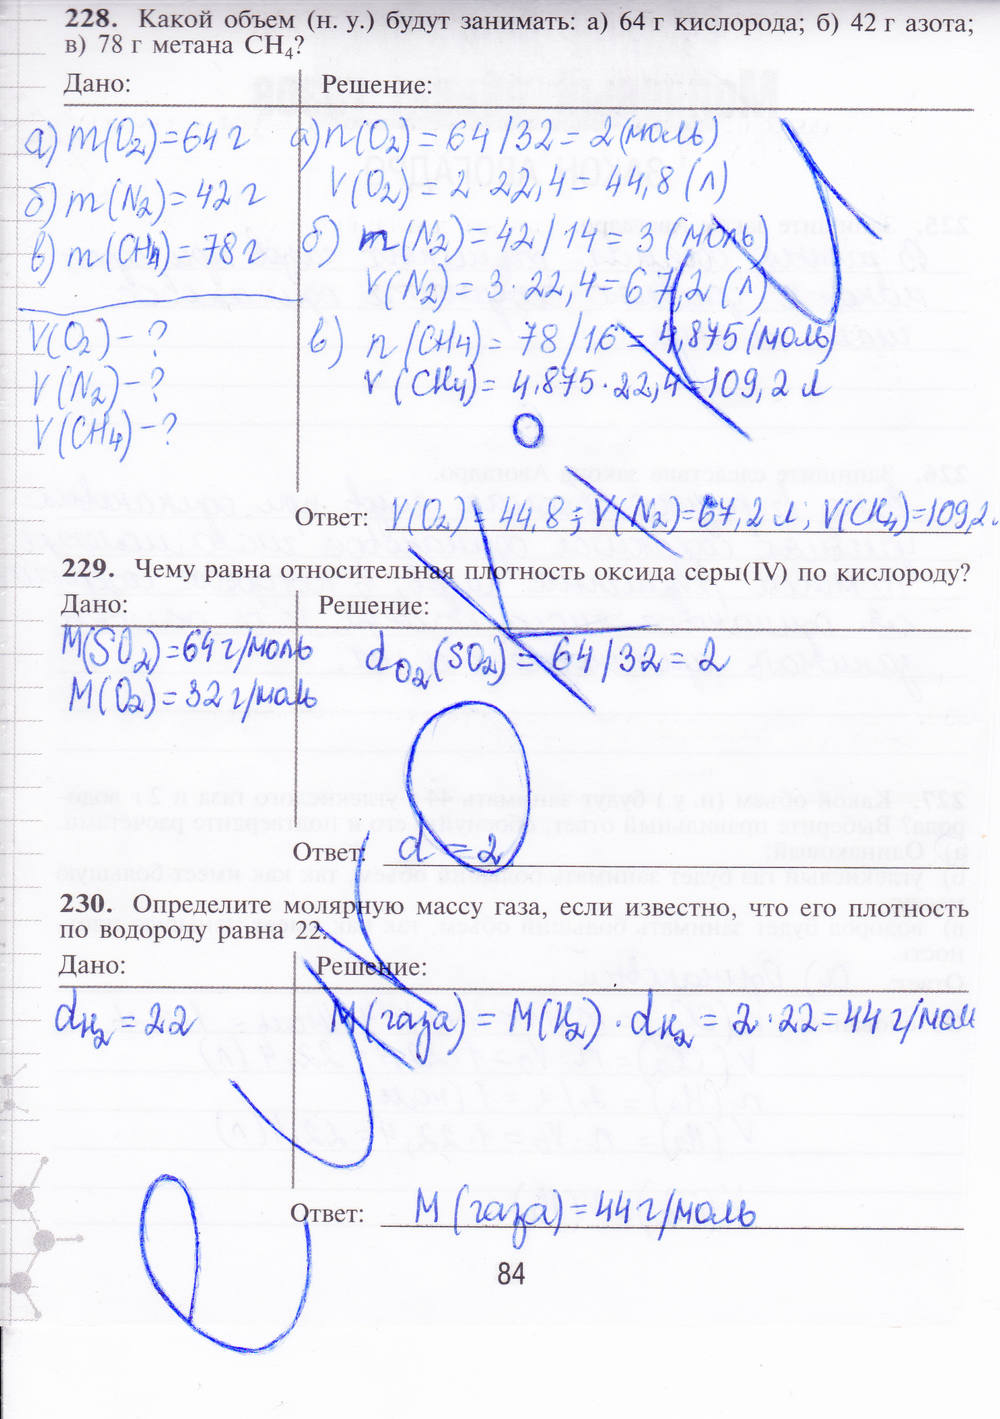 228. Какой объем (н. у.) будут занимать: а) 64 г кислорода; б) 42 г азота;
в) 78 г метана CH4?
Дано:
Решение:
а) m(O2)=64 г
б) m(N2)=42 г
в) m(CH4)=78 г
V(O2)-?
V(N2)-?
V(CH4)-?
а) n(O2)=64/32=2(моль)
V(O2)=2·22,4=44,8(л)
б) m(N2)=42/14=3(моль)
V(N2)=3·22,4=67,2(л)
в) n(CH4)=78/16=4,875(моль)
V(CH4)=4.875·22,4=109,2 л
Ответ: V(O2)=44,8; V(N2)=67,2 л; V(CH4)=109,2 л
229. Чему равна относительная плотность оксида серы(IV) по кислороду?
Дано:
Решение:
M(SO2)=64 г/моль
M(O2)=32 г/моль
dO2(SO2)=64/32=2
Ответ: d=2
230. Определите молярную массу газа, если известно, что его плотность
по водороду равна 22.
Дано:
Решение:
dH2=22
M(газа)=M(H2)·dH2=2·22=44 г/моль
Ответ: M(газа)=44 г/моль
84